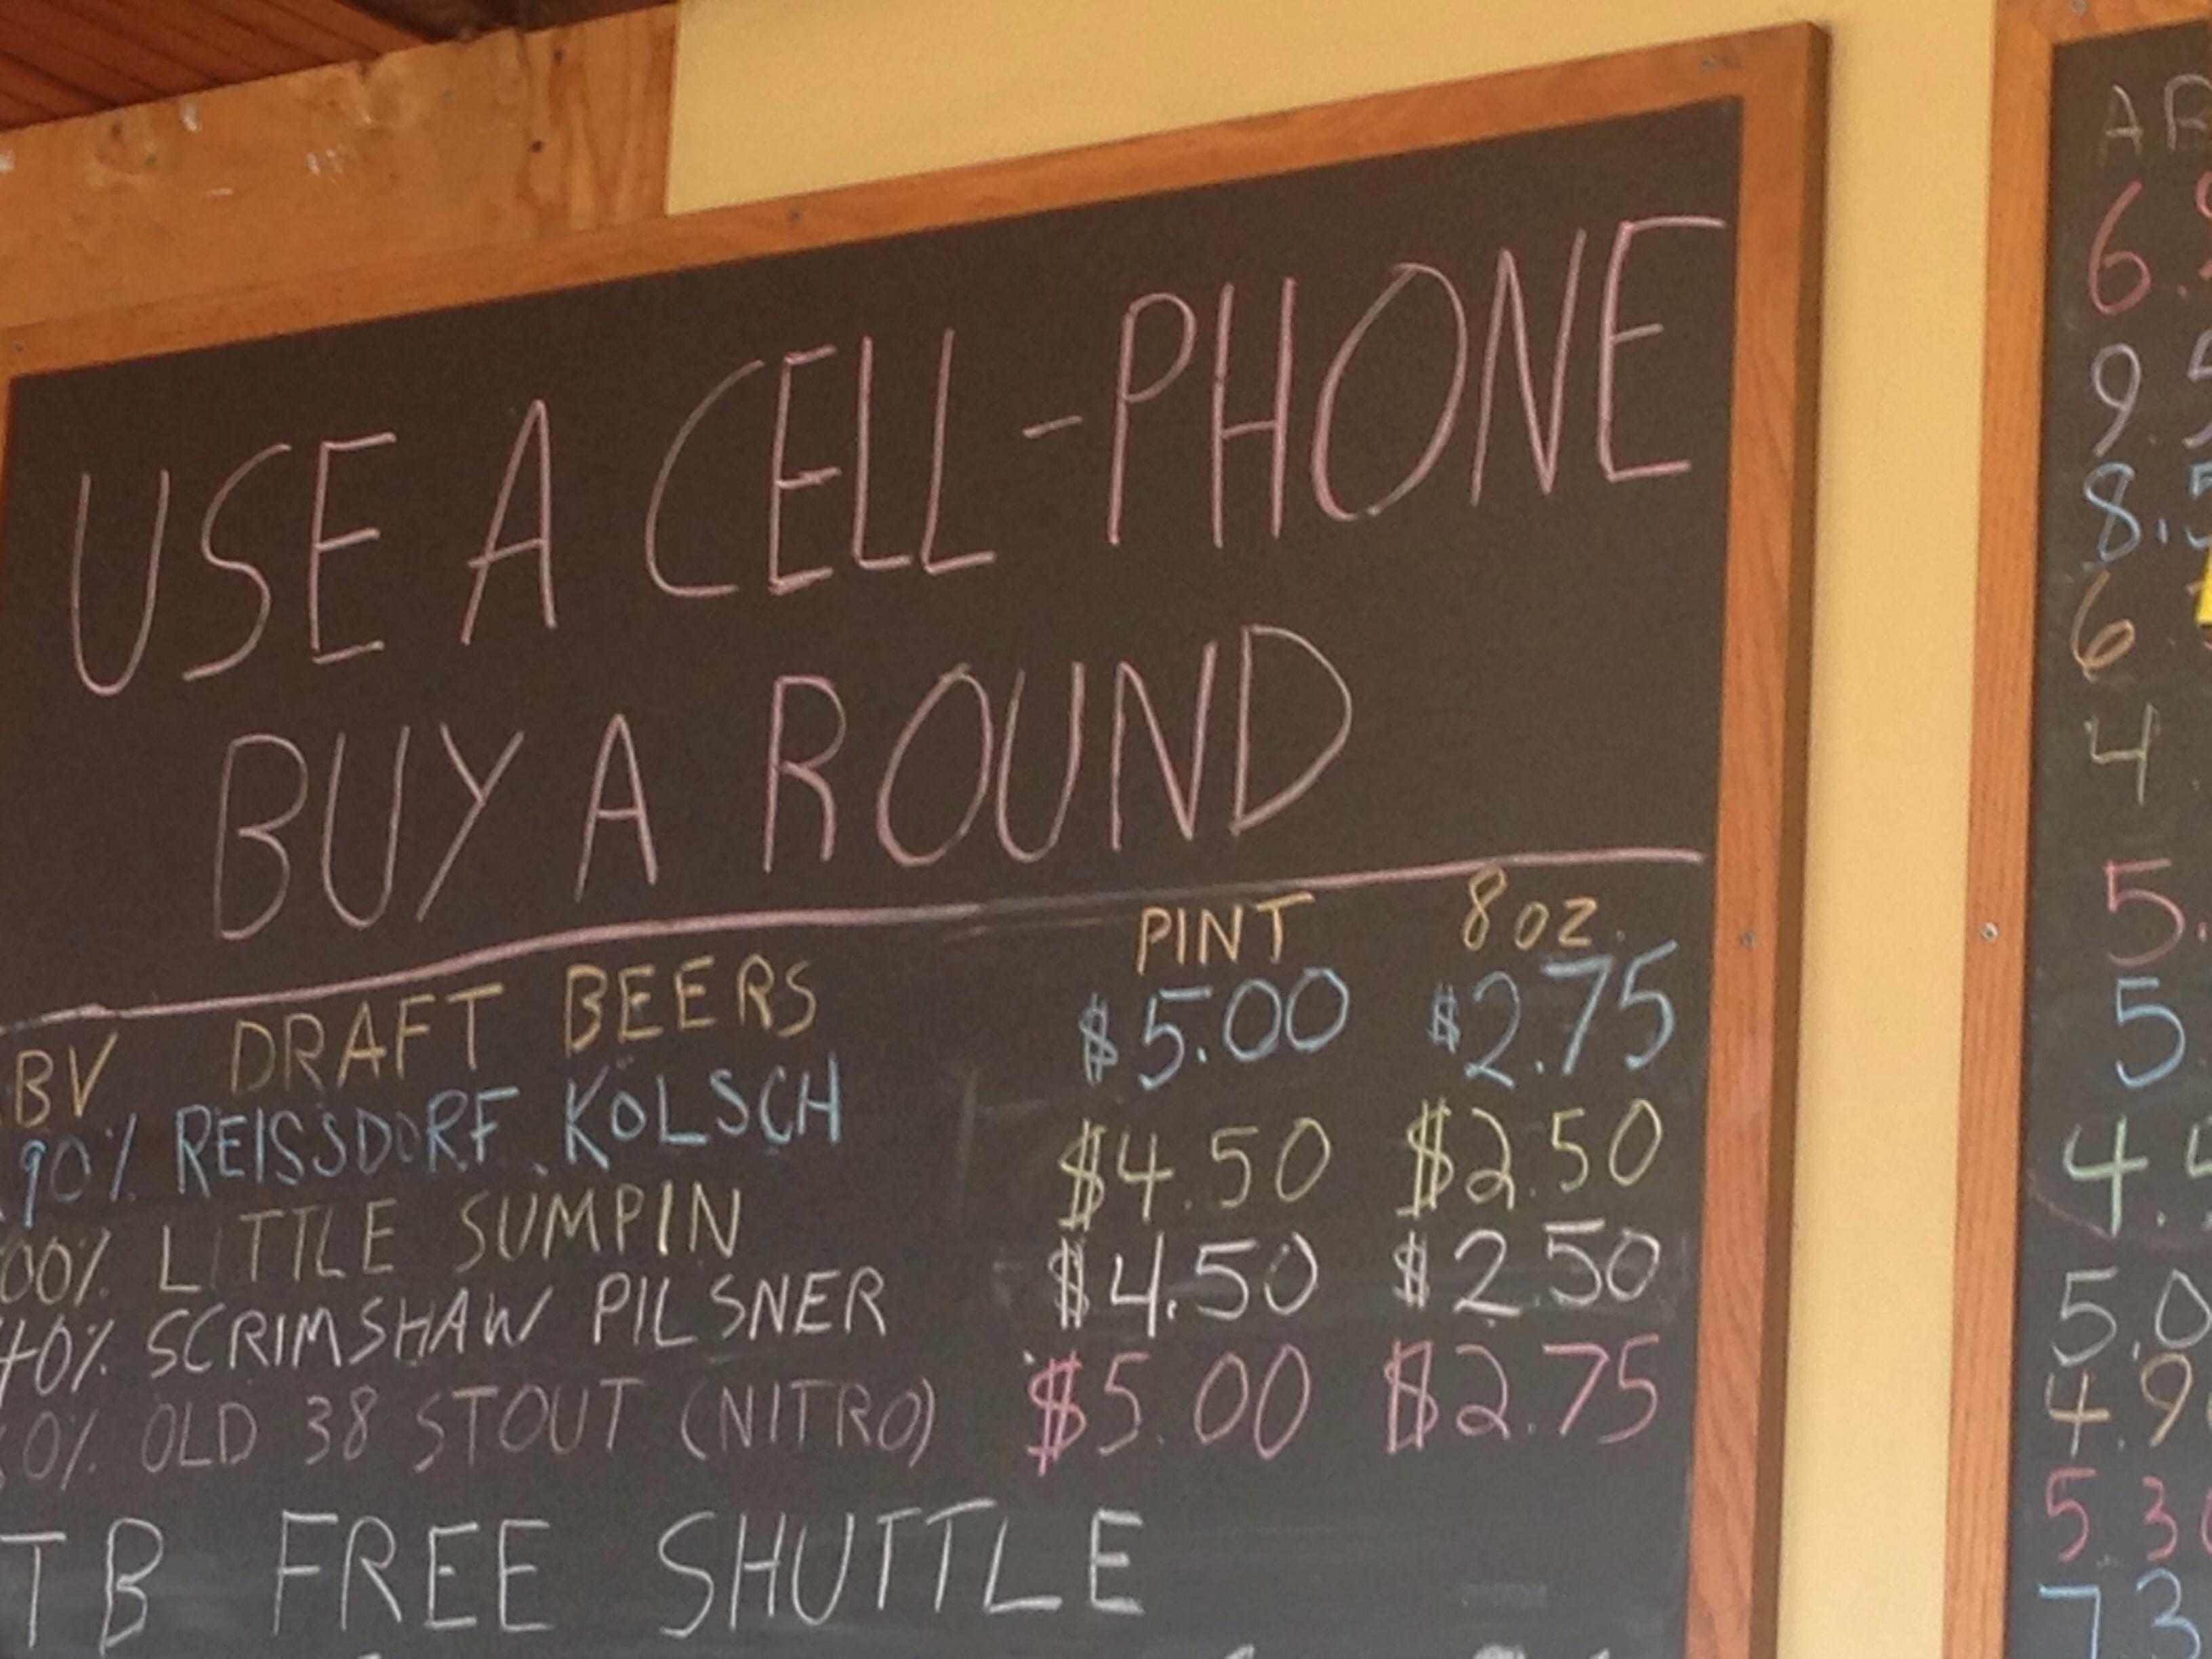 USE A CELL-PHONE
BUY A ROUND
BV DRAFT BEERS PINT 8 oz.
90% REISSDORF KOLSCH $5.00 $2.75
00% LITTLE SUMPIN $4.50 $2.50
40% SCRIMSHAW PILSNER $4.50 $2.50
0% OLD 38 STOUT (NITRO) $5.00 $2.75
TB FREE SHUTTLE
6.
9.5
8.5
6
4
5.
5.
4.4
5.0
4.9
5.30
7.3